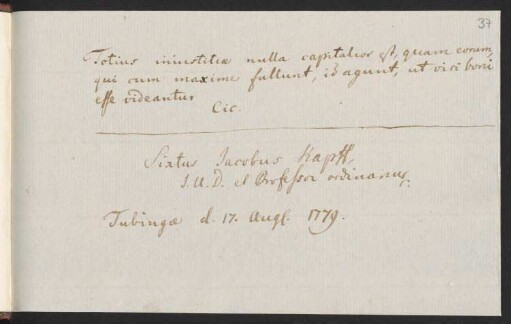 37
Totius iniustitiæ nulla capitalior est, quam eorum,
qui cum maxime fallunt, id agunt, ut viri boni
esse videantur
Cic.
Sixtus Jacobus Kapff,
J. U. D. et Professor ordinarius.
Tubingæ d. 17. Aug. 1779.